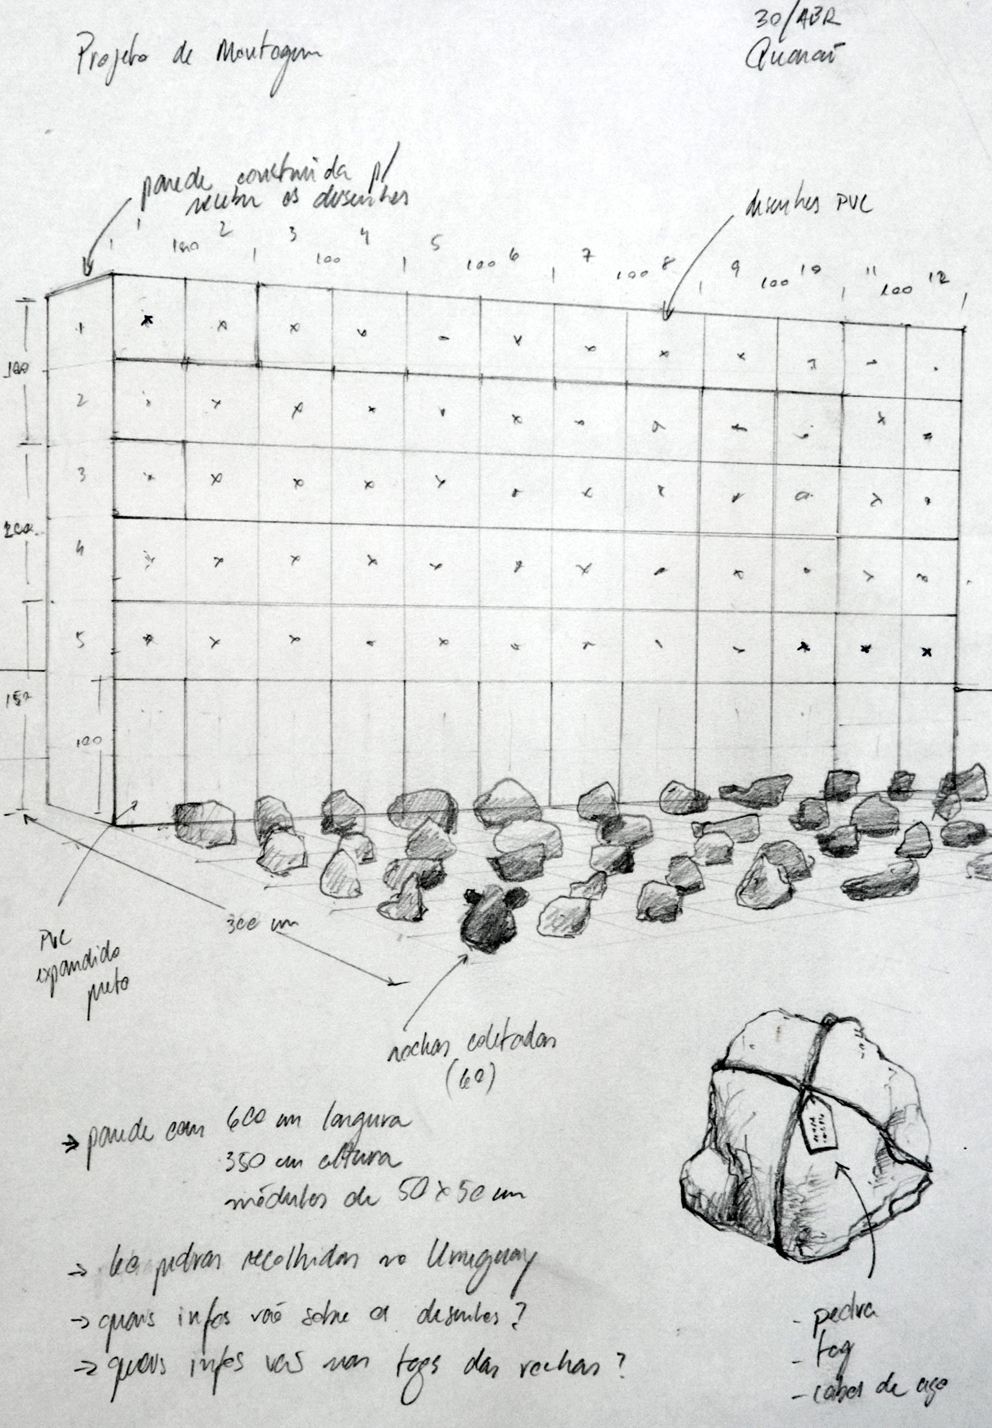 Projeto de Montagem
30/ABR
Quaraí
parede construída p/
receber os desenhos
desenhos PVC
1 2 3 4 5 6 7 8 9 10 11 12
100 100 100 100 100 100
1
100
2
3
200
4
5
150
100
300 cm
PVC
expandido
preto
rochas coletadas
(60)
→ parede com 600 cm largura
350 cm altura
módulos de 50 x 50 cm
→ 60 pedras recolhidas no Uruguay
→ quais infos vão sobre os desenhos?
→ quais infos vão nas tags das rochas?
- pedra
- tag
- cabos de aço